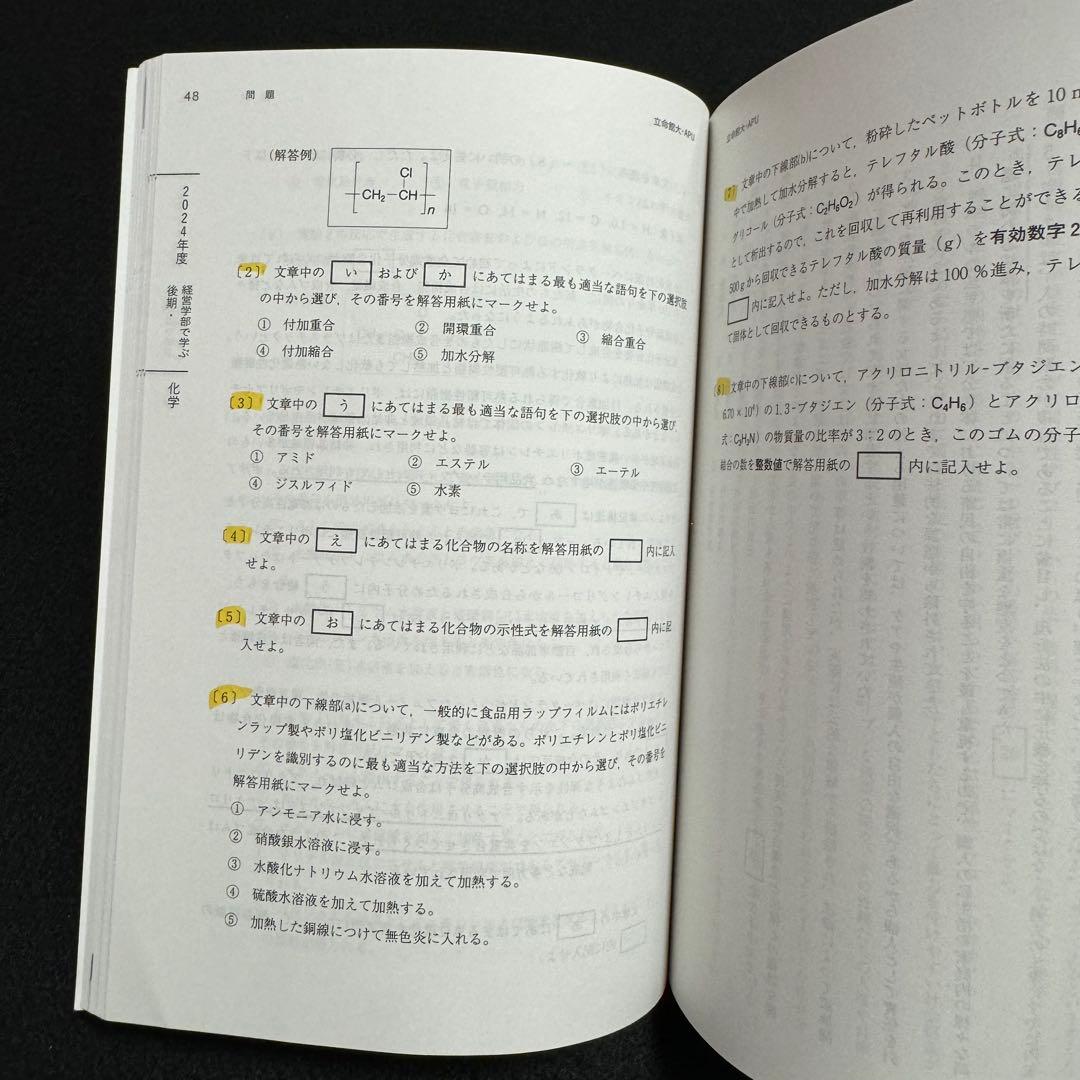 48 問 題
立命館大・APU
2024年度 後期・経営学部で学ぶ 化学
(解答例)
Cl
CH₂ - CH
n
〔2〕 文章中の い および か にあてはまる最も適当な語句を下の選択肢
の中から選び，その番号を解答用紙にマークせよ。
① 付加重合 ② 開環重合 ③ 縮合重合
④ 付加縮合 ⑤ 加水分解
〔3〕 文章中の う にあてはまる最も適当な語句を下の選択肢の中から選び，
その番号を解答用紙にマークせよ。
① アミド ② エステル ③ エーテル
④ ジスルフィド ⑤ 水素
〔4〕 文章中の え にあてはまる化合物の名称を解答用紙の 内に記入
せよ。
〔5〕 文章中の お にあてはまる化合物の示性式を解答用紙の 内に記
入せよ。
〔6〕 文章中の下線部(a)について，一般的に食品用ラップフィルムにはポリエチレ
ンラップ製やポリ塩化ビニリデン製などがある。ポリエチレンとポリ塩化ビニ
リデンを識別するのに最も適当な方法を下の選択肢の中から選び，その番号を
解答用紙にマークせよ。
① アンモニア水に浸す。
② 硝酸銀水溶液に浸す。
③ 水酸化ナトリウム水溶液を加えて加熱する。
④ 硫酸水溶液を加えて加熱する。
⑤ 加熱した銅線につけて無色炎に入れる。
立命館大・APU
〔7〕 文章中の下線部(b)について，粉砕したペットボトルを 10 m
中で加熱して加水分解すると，テレフタル酸（分子式：C₈H₆
グリコール（分子式：C₂H₆O₂）が得られる。このとき，テレ
として析出するので，これを回収して再利用することができる
500 g から回収できるテレフタル酸の質量（g）を有効数字 2
内に記入せよ。ただし，加水分解は 100 % 進み，テレ
て固体として回収できるものとする。
〔8〕 文章中の下線部(c)について，アクリロニトリル-ブタジエン
6.70 × 10⁴）の 1,3-ブタジエン（分子式：C₄H₆）とアクリロ
式：C₃H₃N）の物質量の比率が 3：2 のとき，このゴムの分子
結合の数を整数値で解答用紙の 内に記入せよ。